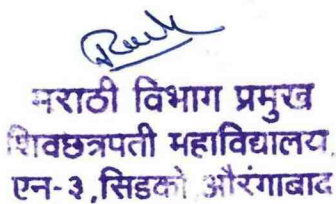 मराठी विभाग प्रमुख
शिवछत्रपती महाविद्यालय,
एन-३,सिडको औरंगाबाद